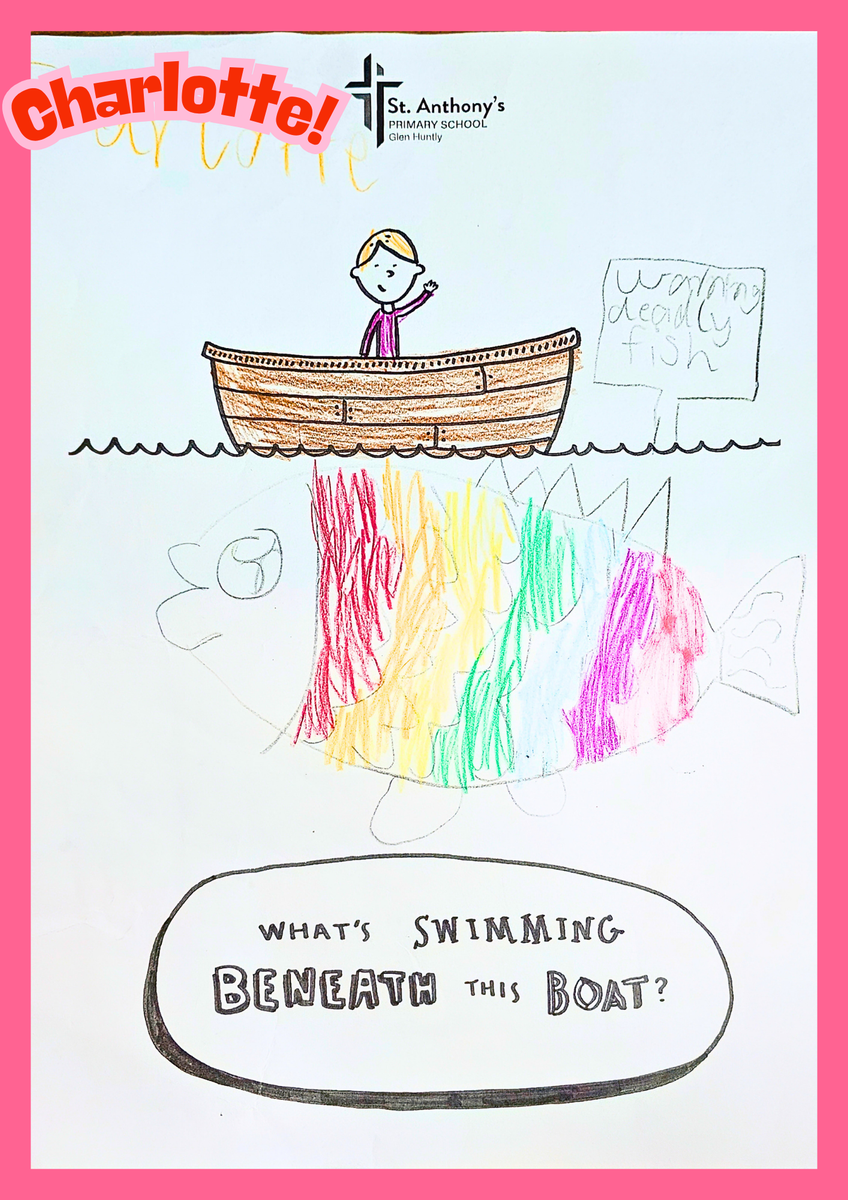 Charlotte!
arlotte
St. Anthony's
PRIMARY SCHOOL
Glen Huntly
warning
deadly
fish
WHAT'S SWIMMING
BENEATH THIS BOAT?